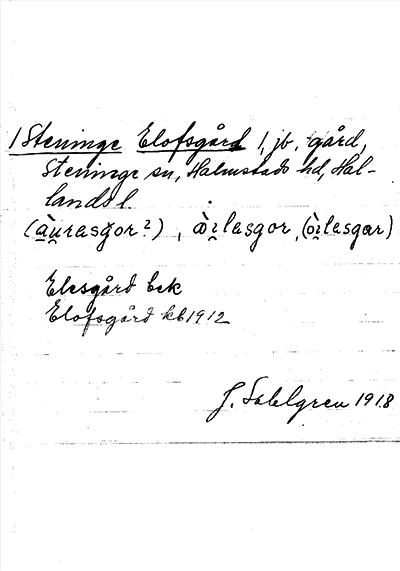 1 Steninge Elofsgård 1, jb. gård,
Steninge sn, Halmstads hd, Hal-
lands l.
(å̱u̯rasgor?), ɷ̀ı̯lasgor, (ɔ̀ı̯lasgar)
Elesgård Eck
Elofsgård kb 1912
J. Sahlgren 1918